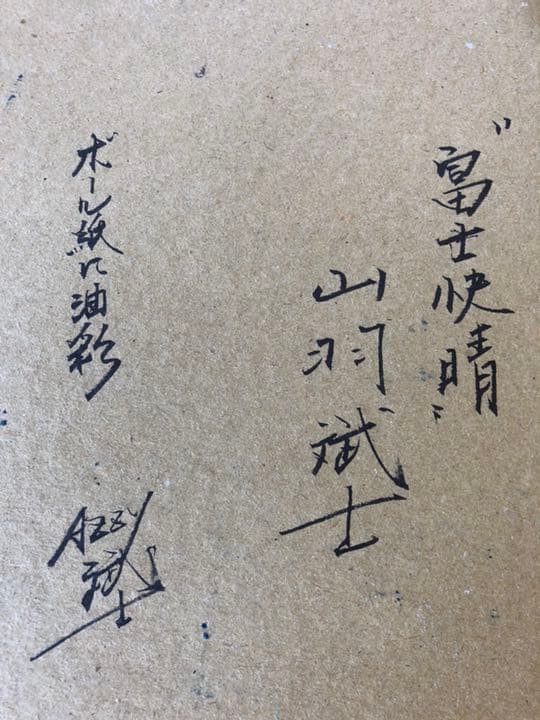 "富士快晴"
山羽斌士
ボール紙に油彩
斌士